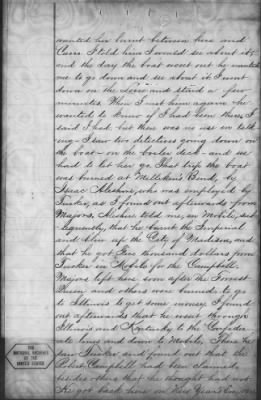 wanted her burnt between here and
Cairo I told him I would see about it,
and the day the boat went out he wanted
me to go down and see about it I went
down on the levee and staid a few
minutes When I met him again he
wanted to know if I had been there, I
said I had but there was no use in tell
ing I saw two detectives going down on
the boat on the boiler deck and we
had to let her go That trip the boat
was burned at Milliken's Bend, by
Isaac Aleshire, who was employed by
Tucker, as I found out afterwards
Majors. Aleshire told me, in Mobile, sub-
sequently, that he burnt the Imperial
and blew up the City of Madison, and
that he got five thousand dollars from
Tucker in Mobile for the Campbell.
Majors left here soon after the Forest
Queen and others were burned, to go
to Illinois to get some money. I found
out afterwards that he went through
Illinois and Kentucky to the Confeder-
ate lines and down to Mobile, There he
saw Tucker and found out that the
Robert Campbell had been claimed,
besides others that he thought had not
He got back here on New Year's Eve
THE
NATIONAL ARCHIVES
OF THE
UNITED STATES